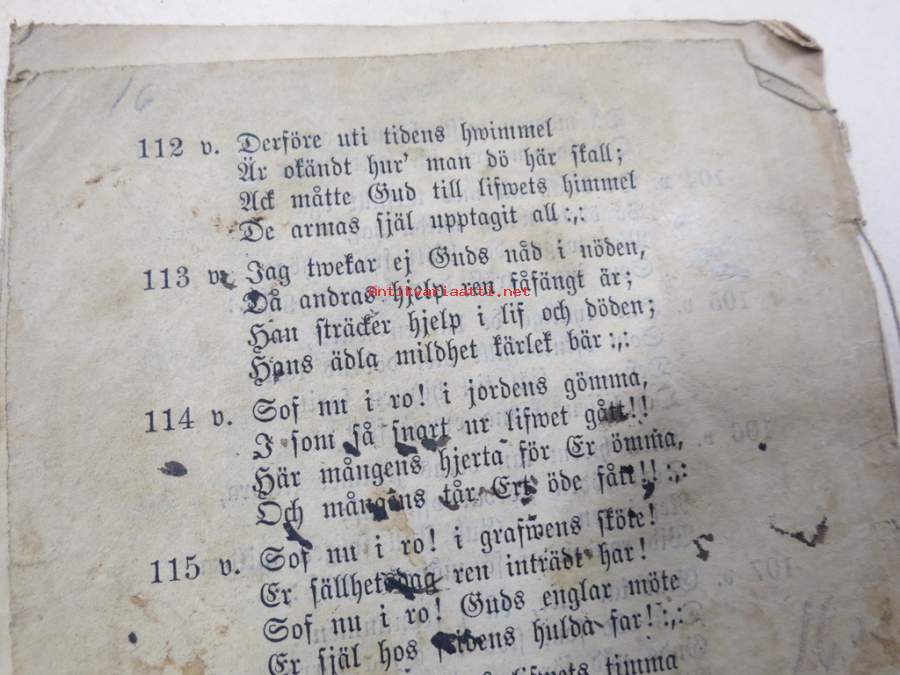 16
112 v. Derföre uti tidens hwimmel
Är okändt hur' man dö här skall;
Ack måtte Gud till lifwets himmel
De armas själ upptagit all :,:
113 v. Jag twekar ej Guds nåd i nöden,
Då andras hjelp ren fåfängt är;
antikvariaatti.net
Han sträcker hjelp i lif och döden;
Hans ädla mildhet kärlek bär :,:
114 v. Sof nu i ro! i jordens gömma,
I som så snart ur lifwet gått!!
Här mångens hjerta för Er ömma,
Och mångens tår Ert öde fått!! :,:
115 v. Sof nu i ro! i grafwens sköte!
Er sällhetsdag ren inträdt har!
Sof nu i ro! Guds englar möte
Er själ hos fridens hulda far! :,:
lifwets timma